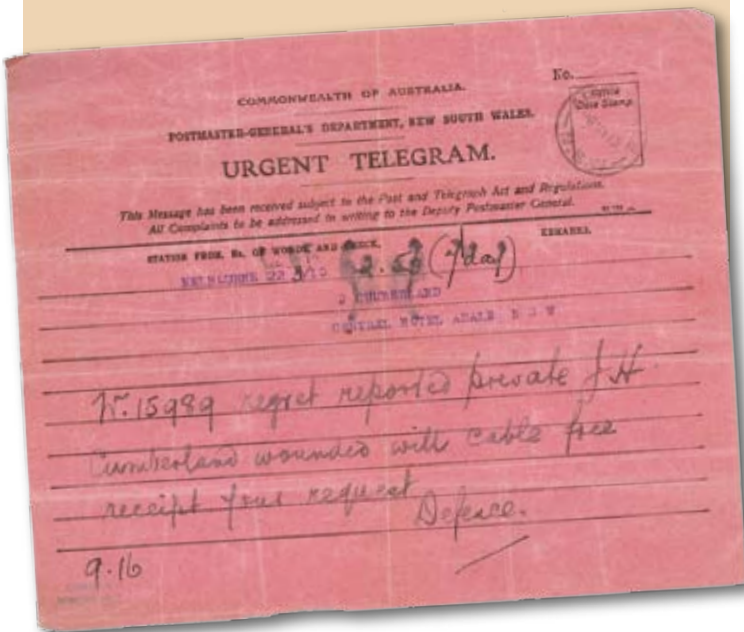 No.
COMMONWEALTH OF AUSTRALIA.
Office
Date Stamp.
POSTMASTER-GENERAL'S DEPARTMENT, NEW SOUTH WALES.
URGENT TELEGRAM.
This Message has been received subject to the Post and Telegraph Act and Regulations.
All Complaints to be addressed in writing to the Deputy Postmaster General.
STATION FROM, No. OF WORDS, AND CHECK.
REMARKS.
MELBOURNE 22
CUMBERLAND
CENTRAL HOTEL N S W
W.15989 regret reported private J H
Cumberland wounded with cable free
receipt your request
Defence.
9.16